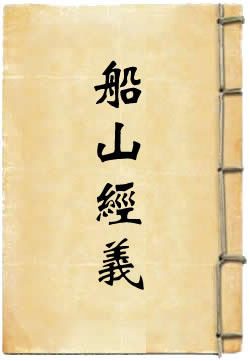 船山經義